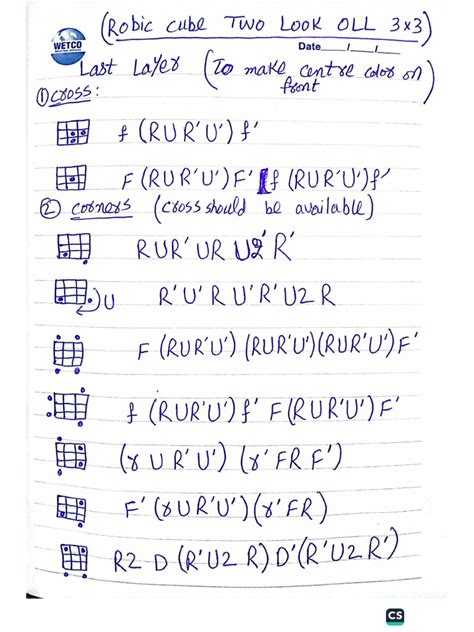 (Robic cube Two Look OLL 3x3)
WETCO
Date / /
Last Layer (To make centre color on front)
① cross:
f (RUR'U') f'
F (RUR'U') F' f (RUR'U') f'
② corners (cross should be available)
RUR' UR U2' R'
U R'U' R U' R' U2 R
F (RUR'U') (RUR'U') (RUR'U') F'
f (RUR'U') f' F (RUR'U') F'
(r U R' U') (r' F R F')
F' (r U R' U') (r' F R)
R2 D (R' U2 R) D' (R' U2 R')
CS